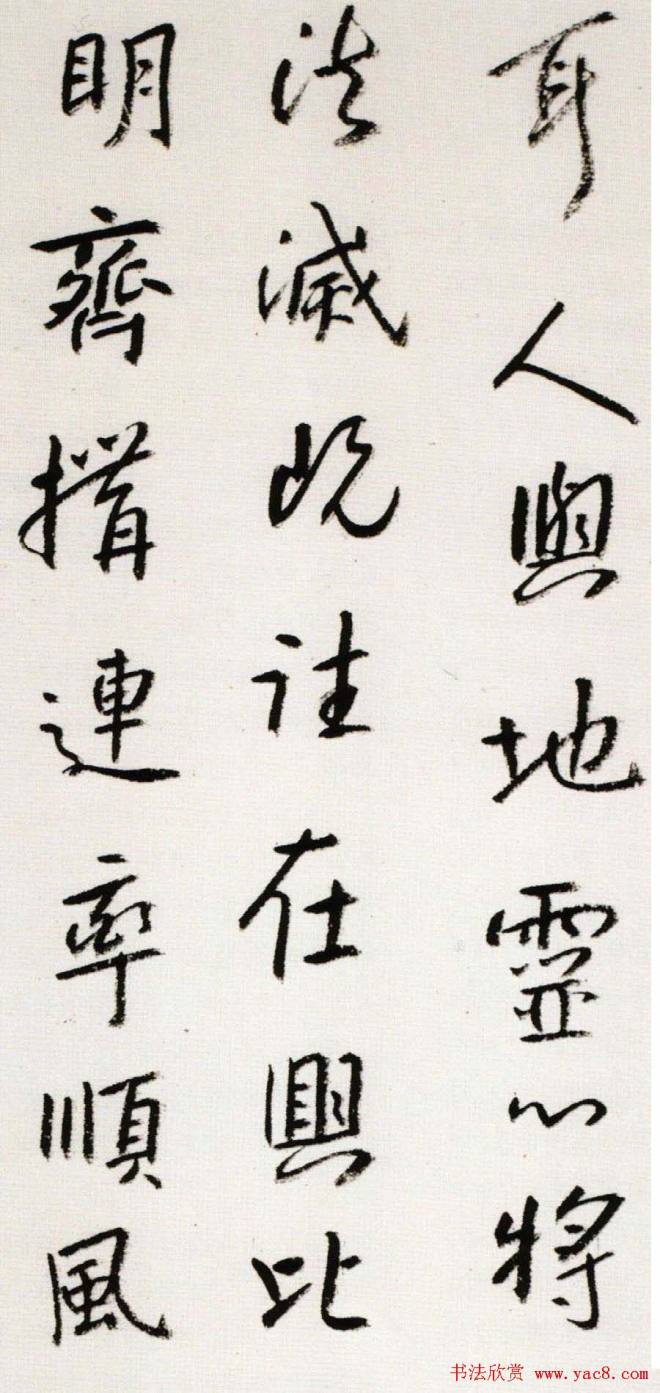 耳人與地靈心將
法滅既往在興比
明齊揖連率順風
书法欣赏 www.yac8.com